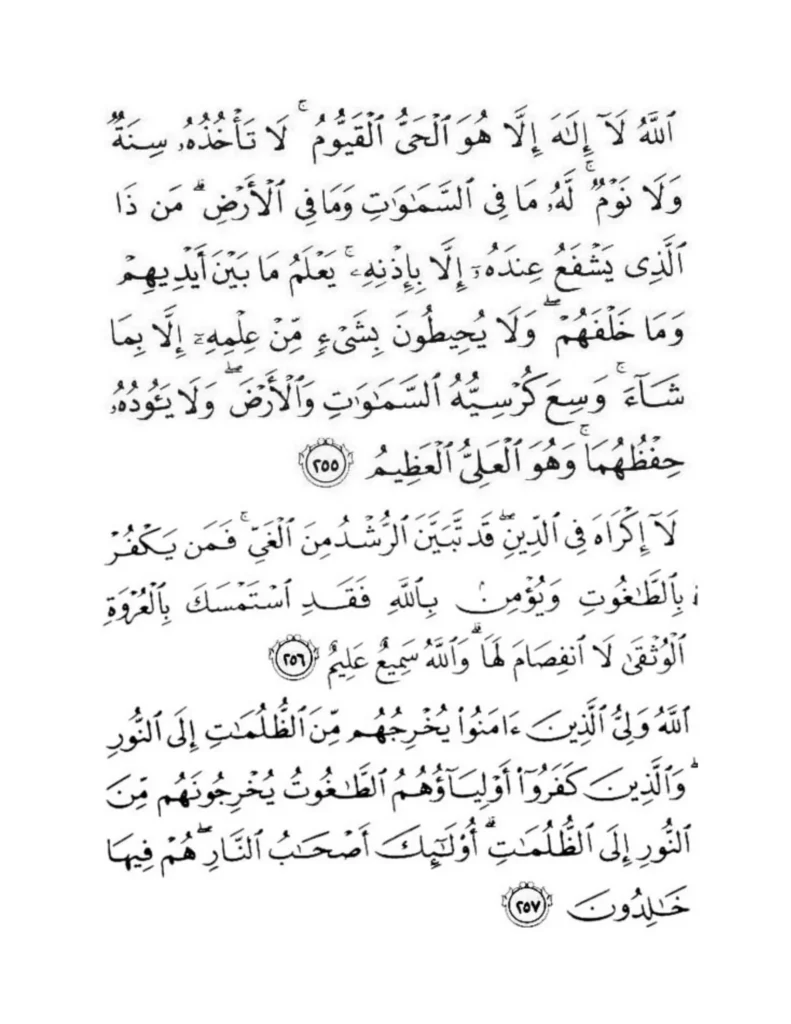 ٱللَّهُ لَآ إِلَٰهَ إِلَّا هُوَ ٱلْحَىُّ ٱلْقَيُّومُ ۚ لَا تَأْخُذُهُۥ سِنَةٌ
وَلَا نَوْمٌ ۚ لَّهُۥ مَا فِى ٱلسَّمَٰوَٰتِ وَمَا فِى ٱلْأَرْضِ ۗ مَن ذَا
ٱلَّذِى يَشْفَعُ عِندَهُۥٓ إِلَّا بِإِذْنِهِۦ ۚ يَعْلَمُ مَا بَيْنَ أَيْدِيهِمْ
وَمَا خَلْفَهُمْ ۖ وَلَا يُحِيطُونَ بِشَىْءٍ مِّنْ عِلْمِهِۦٓ إِلَّا بِمَا
شَآءَ ۚ وَسِعَ كُرْسِيُّهُ ٱلسَّمَٰوَٰتِ وَٱلْأَرْضَ ۖ وَلَا يَـُٔودُهُۥ
حِفْظُهُمَا ۚ وَهُوَ ٱلْعَلِىُّ ٱلْعَظِيمُ ٢٥٥
لَآ إِكْرَاهَ فِى ٱلدِّينِ ۖ قَد تَّبَيَّنَ ٱلرُّشْدُ مِنَ ٱلْغَىِّ ۚ فَمَن يَكْفُرْ
بِٱلطَّٰغُوتِ وَيُؤْمِنۢ بِٱللَّهِ فَقَدِ ٱسْتَمْسَكَ بِٱلْعُرْوَةِ
ٱلْوُثْقَىٰ لَا ٱنفِصَامَ لَهَا ۗ وَٱللَّهُ سَمِيعٌ عَلِيمٌ ٢٥٦
ٱللَّهُ وَلِىُّ ٱلَّذِينَ ءَامَنُوا۟ يُخْرِجُهُم مِّنَ ٱلظُّلُمَٰتِ إِلَى ٱلنُّورِ
ۖ وَٱلَّذِينَ كَفَرُوٓا۟ أَوْلِيَآؤُهُمُ ٱلطَّٰغُوتُ يُخْرِجُونَهُم مِّنَ
ٱلنُّورِ إِلَى ٱلظُّلُمَٰتِ ۗ أُو۟لَٰٓئِكَ أَصْحَٰبُ ٱلنَّارِ ۖ هُمْ فِيهَا
خَٰلِدُونَ ٢٥٧